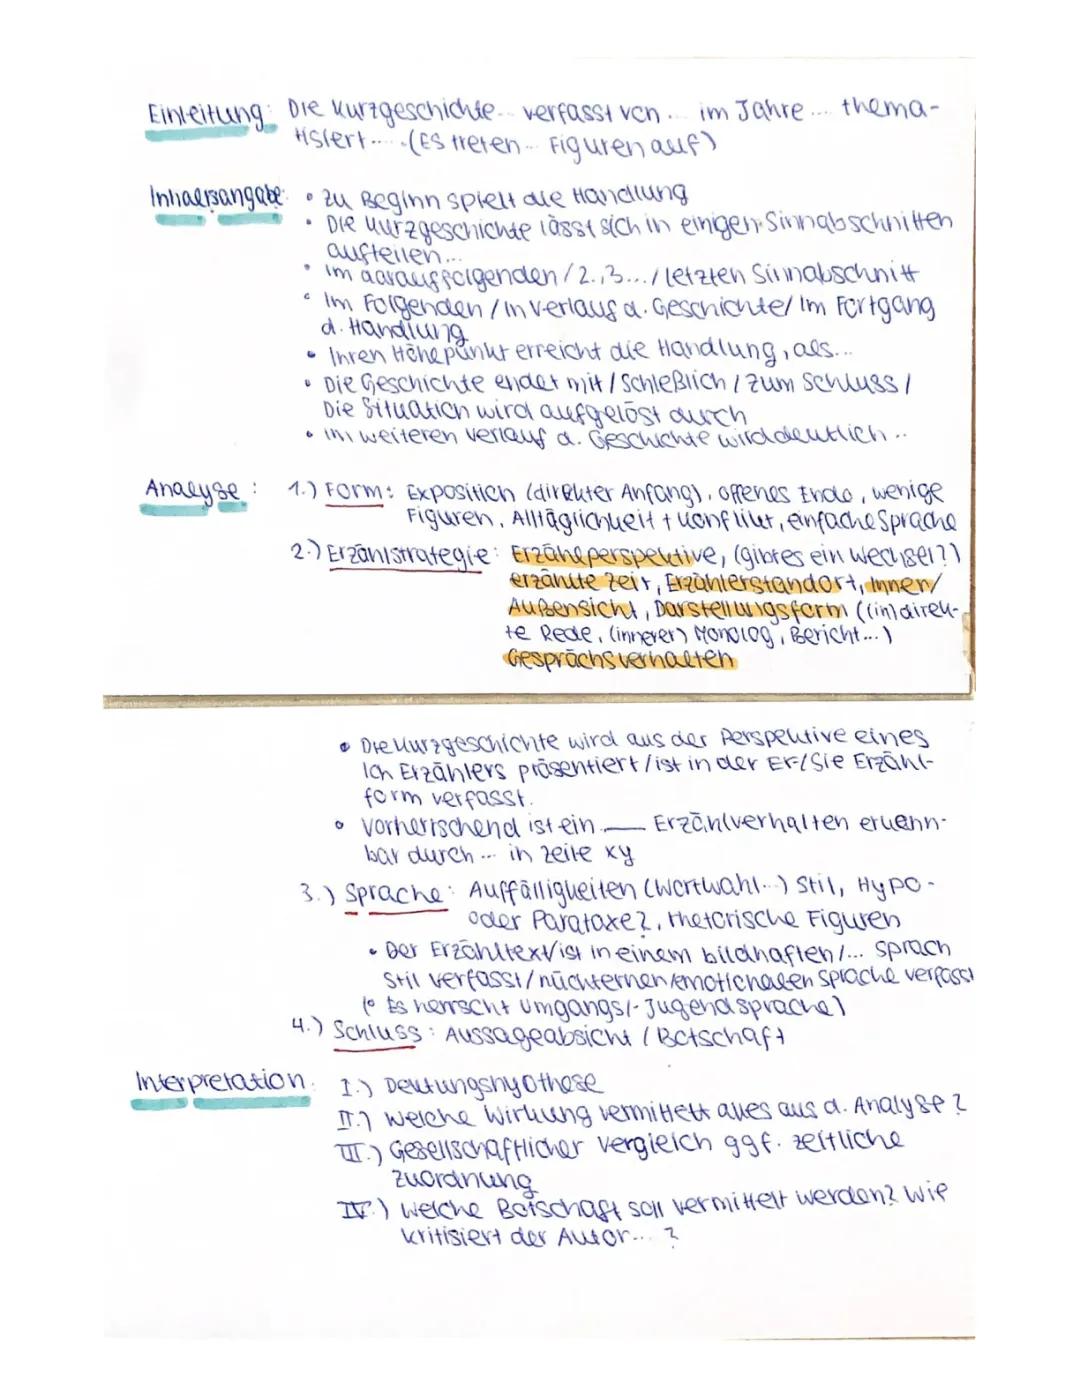 Einleitung: Die Kurzgeschichte... verfasst von... im Jahre.... thema-
tisiert..... (Es treten... Figuren auf)
Inhaltsangabe: • Zu Beginn spielt die Handlung
• Die Kurzgeschichte lässt sich in einigen Sinnabschnitten
aufteilen...
• Im darauffolgenden / 2., 3... / letzten Sinnabschnitt
• Im Folgenden / In Verlauf d. Geschichte / Im Fortgang
d. Handlung
• Ihren Höhepunkt erreicht die Handlung, als...
• Die Geschichte endet mit / Schließlich / Zum Schluss /
Die Situation wird aufgelöst durch
• Im weiteren Verlauf d. Geschichte wird deutlich..
Analyse: 1.) Form: Exposition (direkter Anfang), offenes Ende, wenige
Figuren, Alltäglichkeit + Konflikt, einfache Sprache
2.) Erzählstrategie: Erzählperspektive, (gibt es ein Wechsel?)
erzählte Zeit, Erzählerstandort, Innen/
Außensicht, Darstellungsform ((in)direk-
te Rede, (innerer) Monolog, Bericht...)
Gesprächsverhalten
• Die Kurzgeschichte wird aus der Perspektive eines
Ich Erzählers präsentiert / ist in der Er-/Sie Erzähl-
form verfasst.
• Vorherrschend ist ein ___ Erzählverhalten erkenn-
bar durch... in Zeile xy
3.) Sprache: Auffälligkeiten (Wortwahl...) Stil, Hypo-
oder Parataxe?, rhetorische Figuren
• Der Erzähltext ist in einem bildhaften/... Sprach
stil verfasst / nüchternen/emotionalen Sprache verfasst
(• Es herrscht Umgangs/-Jugendsprache)
4.) Schluss: Aussageabsicht / Botschaft
Interpretation: I.) Deutungshyothese
II.) Welche Wirkung vermittelt alles aus d. Analyse?
III.) Gesellschaftlicher Vergleich ggf. zeitliche
Zuordnung
IV.) Welche Botschaft soll vermittelt werden? Wie
kritisiert der Autor... ?